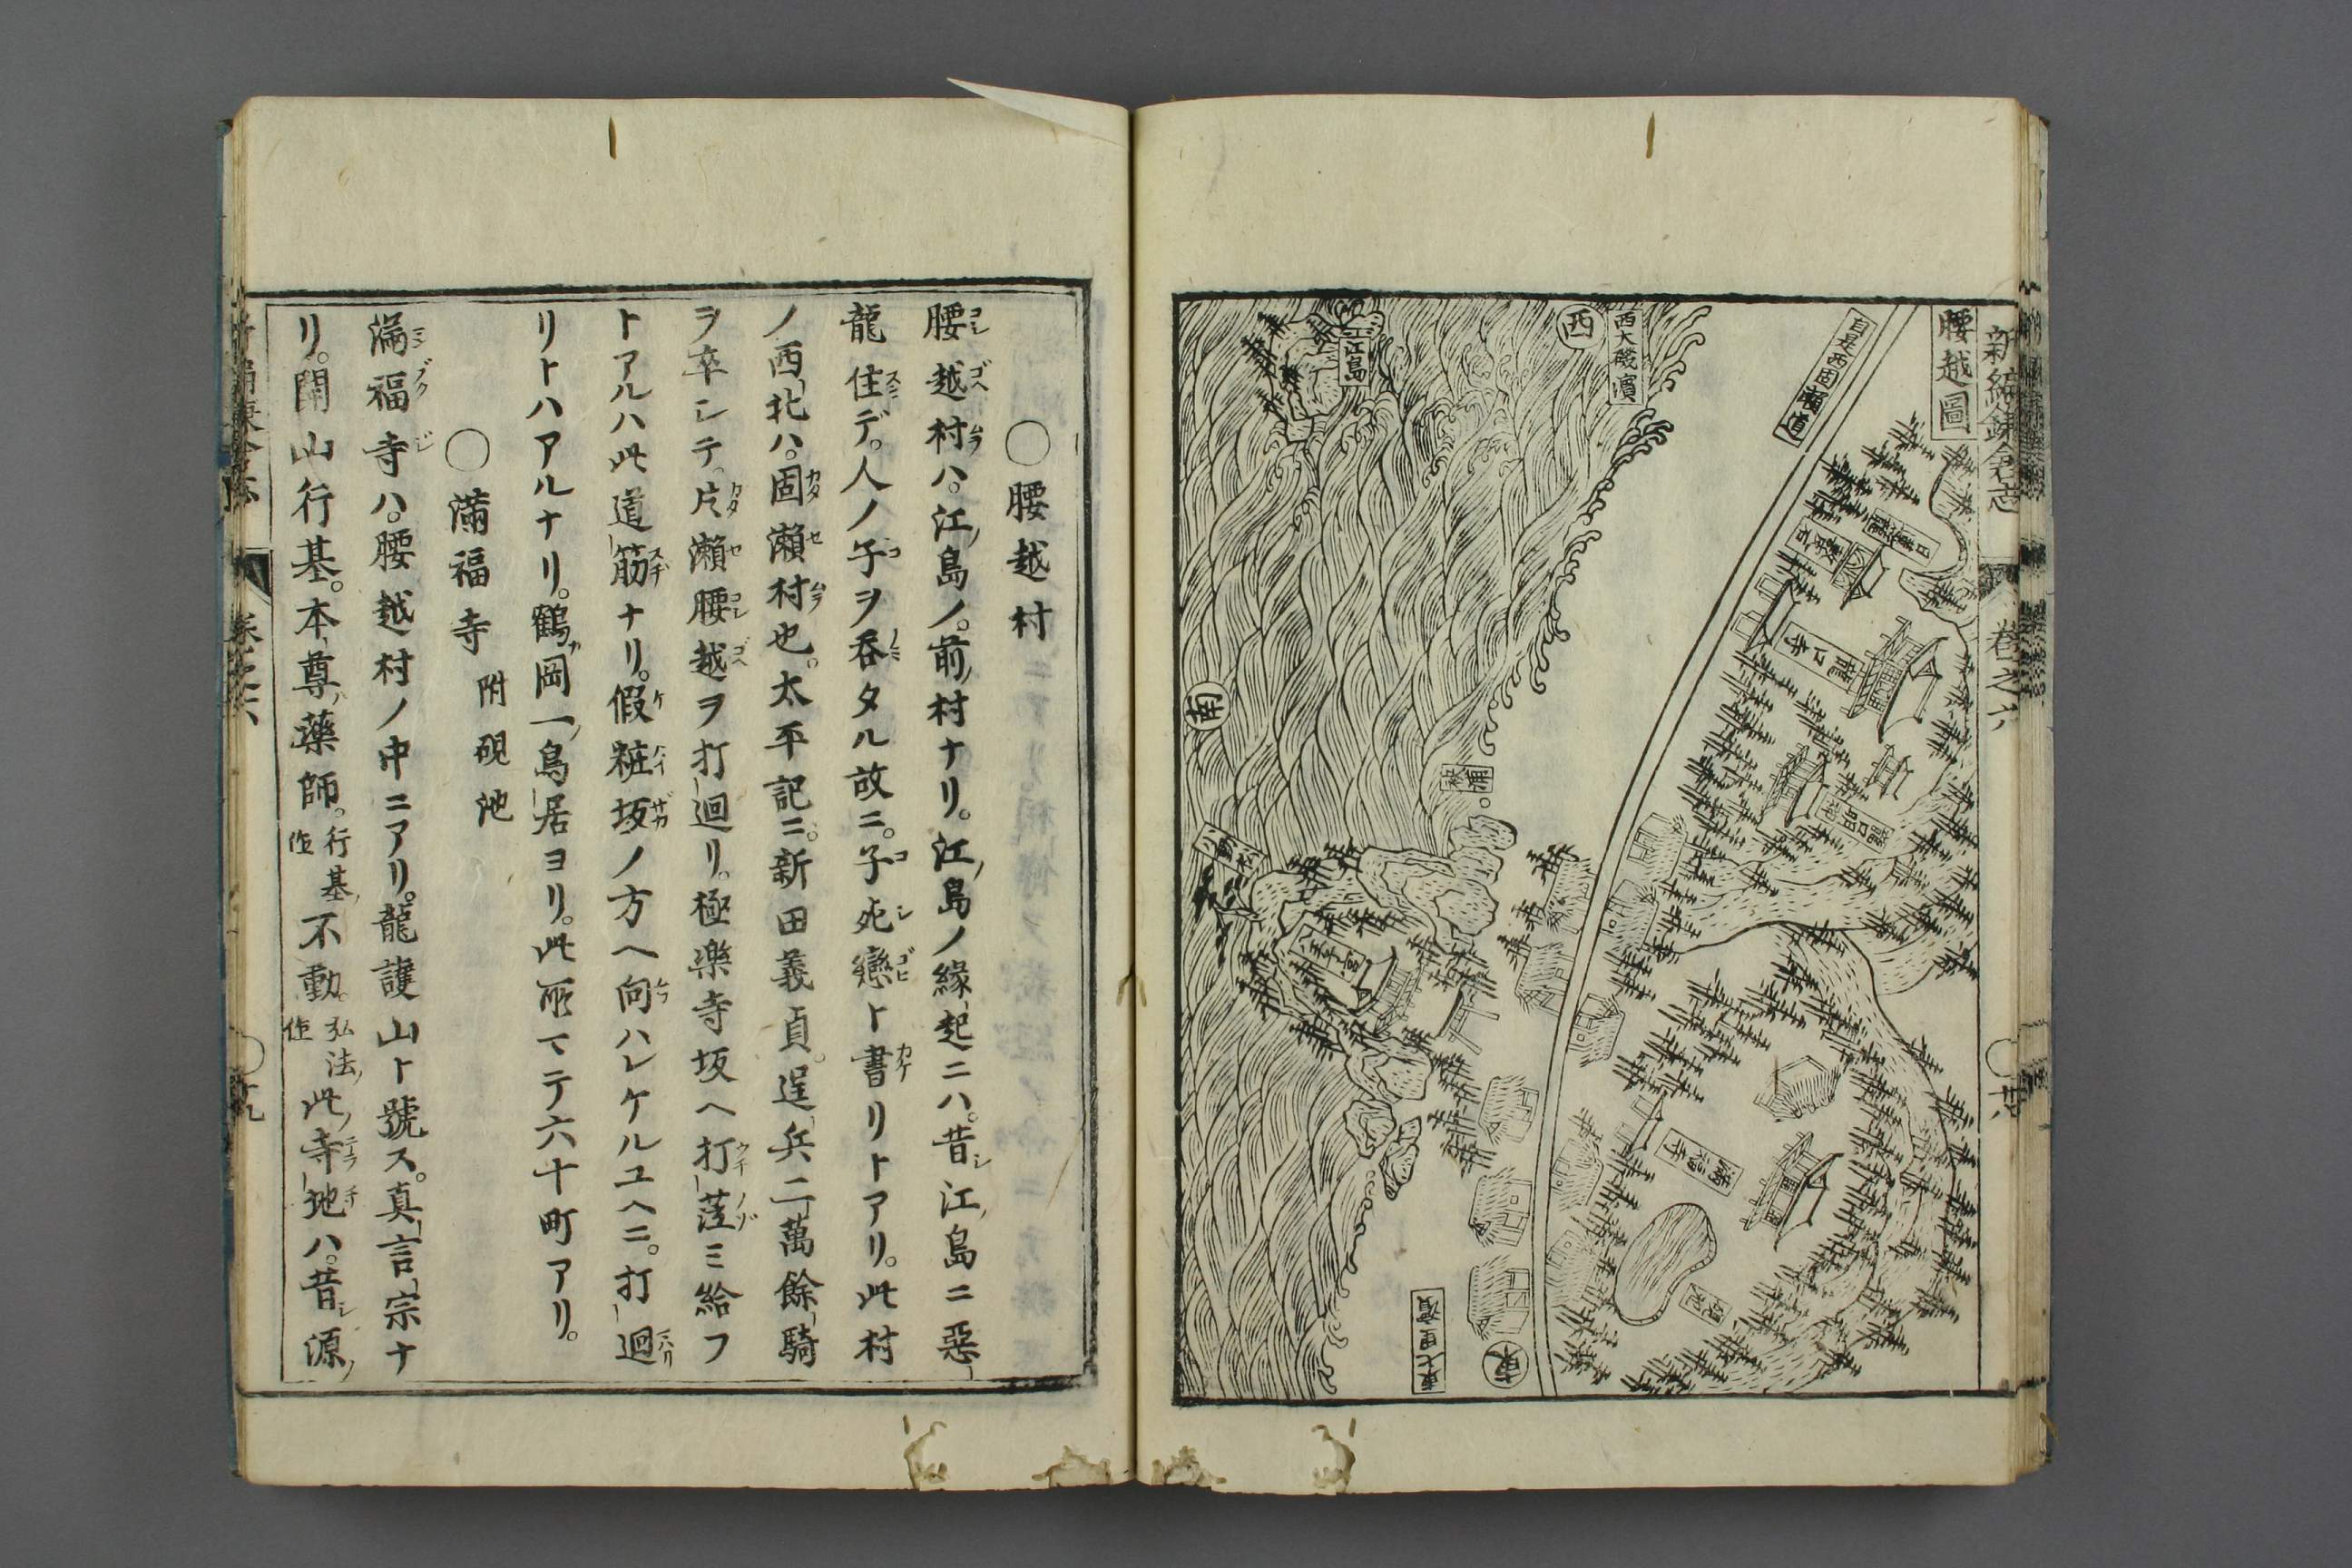 新編鎌倉志
卷之六
腰越圖
自是西固瀬道
西大磯濱
西
江島
龍口寺
龍口明神
南
八王子宮
満福寺
硯池
東七里濱
東
○腰越村
腰越村ハ。江島ノ。前村ナリ。江島ノ緣起ニハ。昔シ江島ニ惡
龍住デ。人ノ子ヲ呑タル故ニ。子死戀ト書リトアリ。此村
ノ西北ハ。固瀬村也。太平記ニ。新田義貞。逞兵二萬餘騎
ヲ卒シテ。片瀬腰越ヲ打迴リ。極樂寺坂ヘ打莅ミ給フ
トアルハ此道筋ナリ。假粧坂ノ方ヘ向ハレケルユヘニ。打迴
リトハアルナリ。鶴岡一鳥居ヨリ。此所マテ六十町アリ。
○滿福寺 附硯池
滿福寺ハ。腰越村ノ中ニアリ。龍護山ト號ス。真言宗ナ
リ。開山行基。本尊藥師。行基作不動。弘法作此寺地ハ。昔シ源